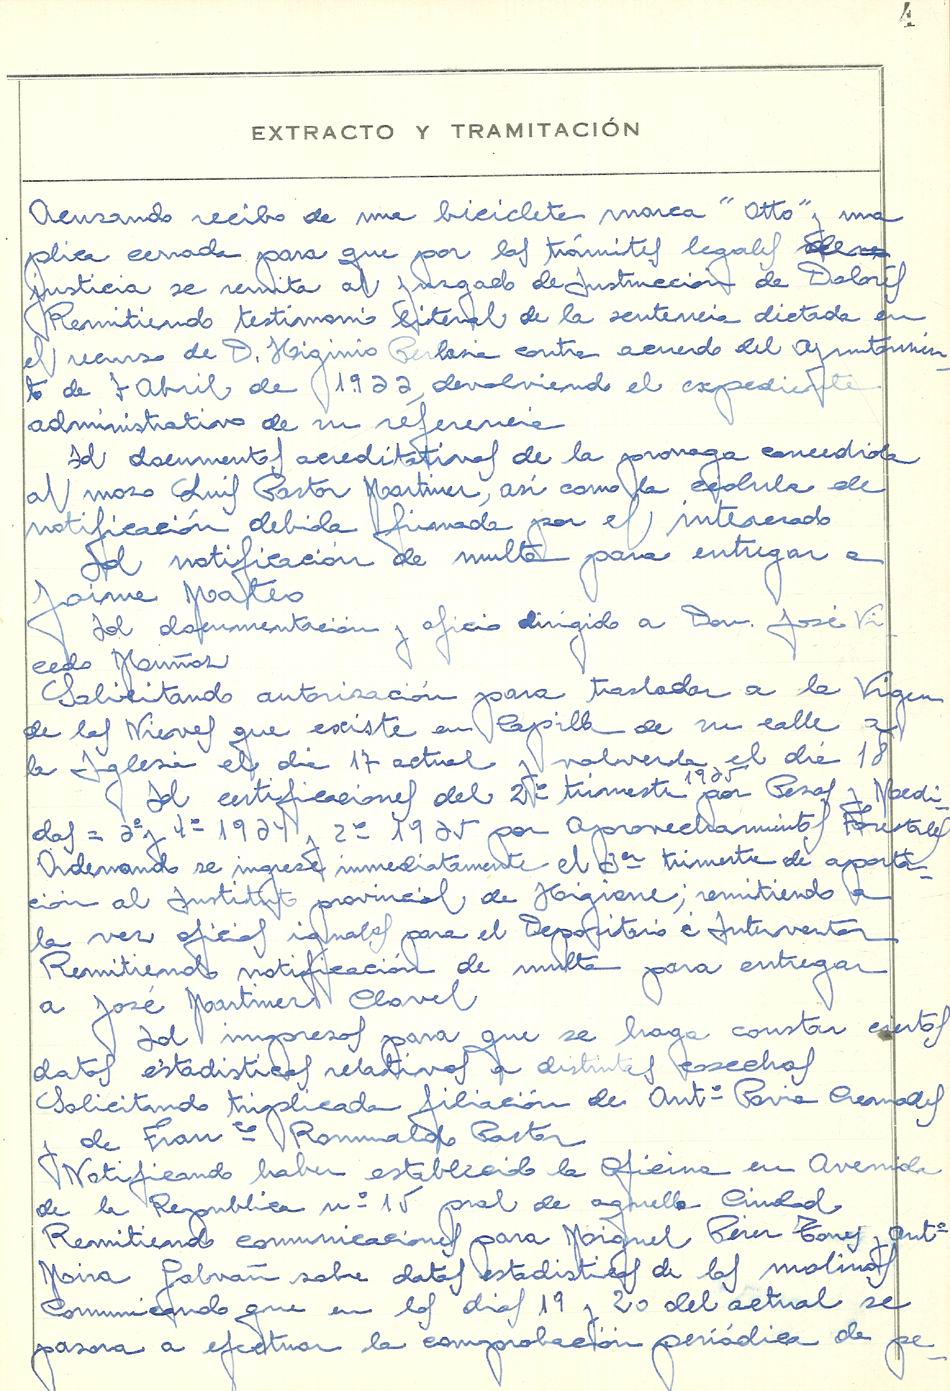 4
EXTRACTO Y TRAMITACIÓN
Acusando recibo de una bicicleta marca "Otto" y una
plica cerrada para que por los trámites legales
justicia se remita al Juzgado de Instrucción de Dolores
Remitiendo testimonio literal de la sentencia dictada en
el recurso de D. Higinio contra acuerdo del Ayuntamien-
to de 7 Abril de 1933, devolviendo el expediente
administrativo de su referencia
Id documentos acreditativos de la prorroga concedida
al mozo Luis Pastor Martinez, así como la cedula de
notificación debida firmada por el interesado
Id notificación de multa para entregar a
Jaime Mateo
Id documentación y oficio dirigido a Don. José Vi-
cedo Muñoz
Solicitando autorización para trasladar a la Virgen
de las Nieves que existe en Capilla de su calle a
la Iglesia el dia 17 actual y volverla el dia 18
Id certificaciones del 2º trimestre 1935 por Pesas y Medi-
das = 3º y 4º 1934 y 2º 1935 por Aprovechamientos Forestales
Ordenando se ingrese inmediatamente el 3er trimestre de aporta-
ción al Instituto provincial de Higiene; remitiendo a
la vez oficios iguales para el Depositario é Interventor
Remitiendo notificación de multa para entregar
a José Martinez Clavel
Id impresos para que se haga constar ciertos
datos estadisticos relativos a distintas cosechas
Solicitando triplicada filiación de Antº Pavia Cremades
y de Franco Romualdo Pastor
Notificando haber establecido la Oficina en Avenida
de la Republica nº 15 pral de aquella Ciudad
Remitiendo comunicaciones para Miguel Perez y Antº
Mira Galvañ sobre datos estadisticos de los molinos
Comunicando que en los dias 19 y 20 del actual se
pasara a efectuar la comprobación periódica de pe-